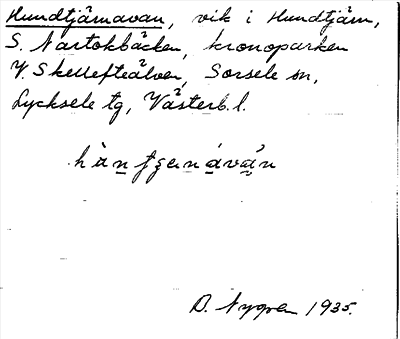 Hundtjärnavan, vik i Hundtjärn,
S. Nartokbäcken, kronoparken
V. Skellefteälven, Sorsele sn,
Lycksele tg, Västerb. l.
D. Nygren 1935.